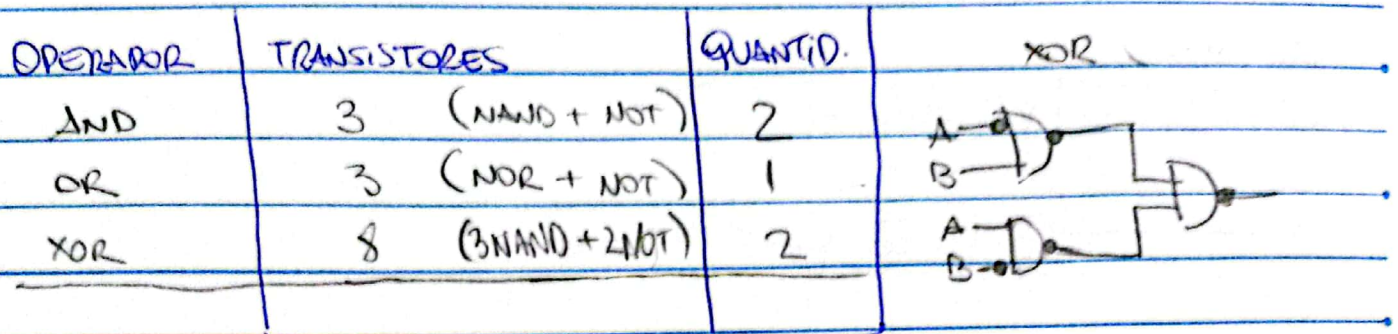 OPERADOR TRANSISTORES QUANTID. XOR
AND 3 (NAND + NOT) 2
OR 3 (NOR + NOT) 1
XOR 8 (3NAND + 2NOT) 2
A
B
A
B